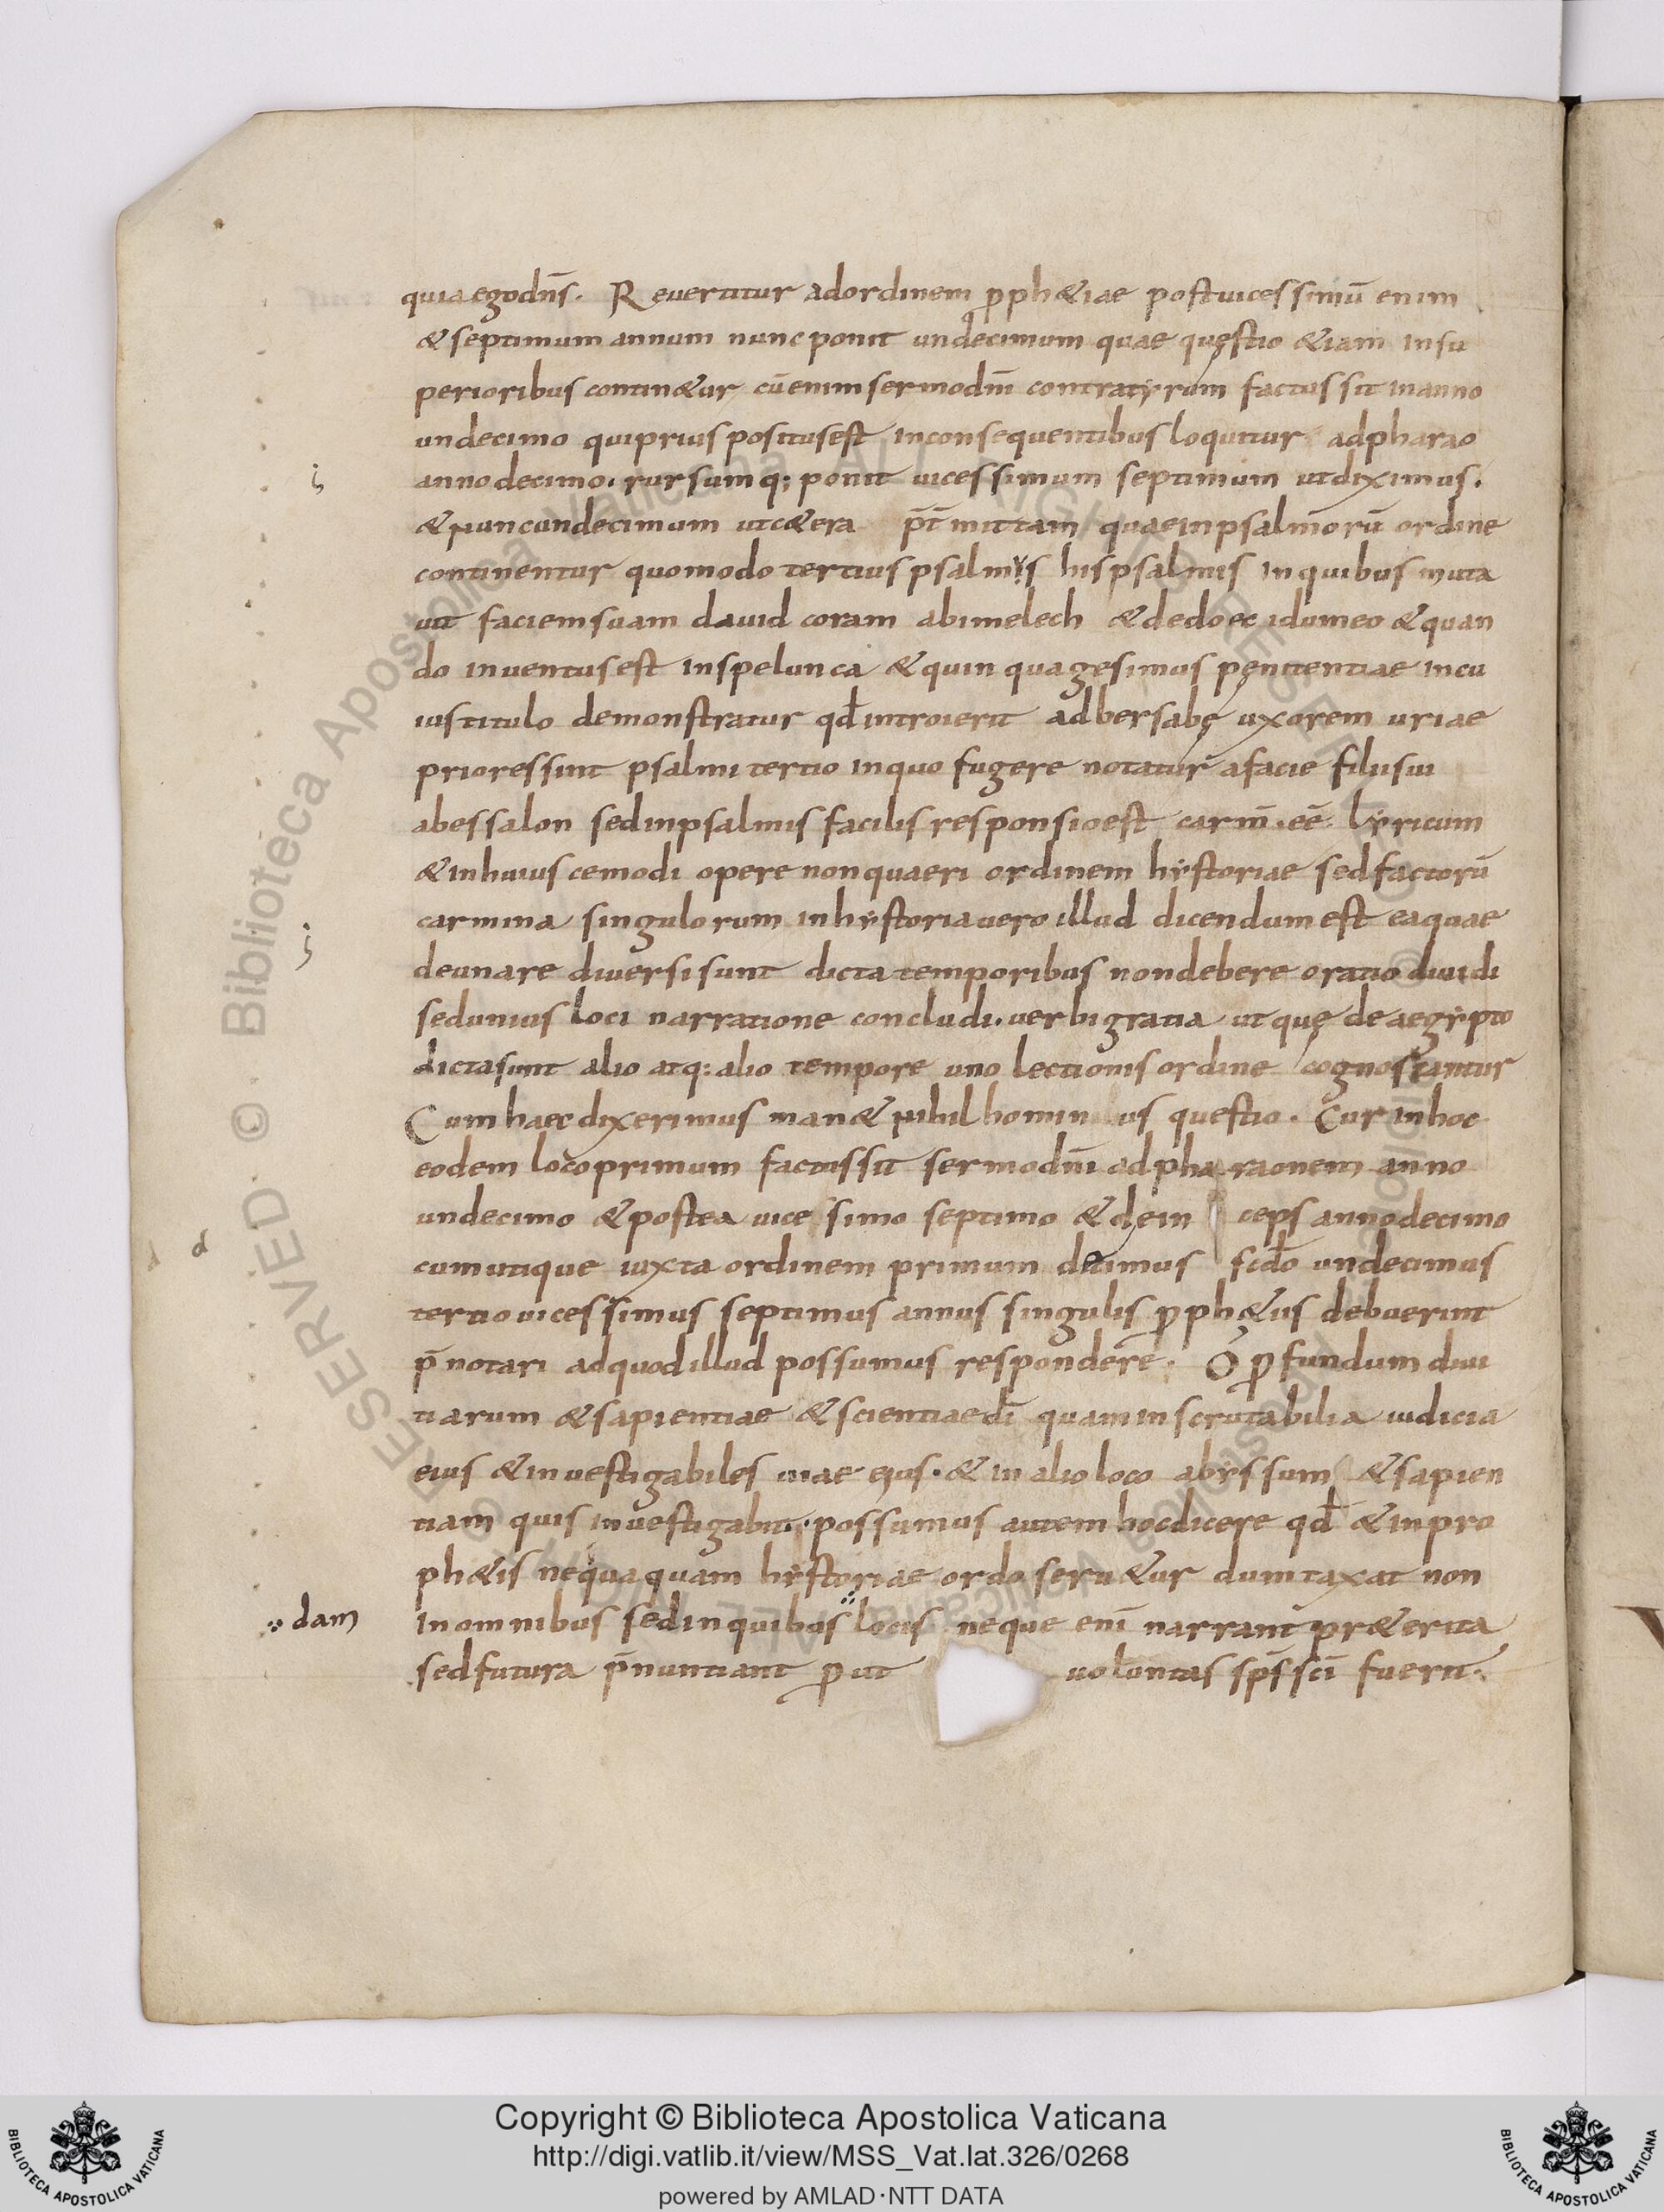 quia ego dn̄s. Reuertitur ad ordinem ꝓph&iae post uicessimū enim
& septimum annum nunc ponit undecimum quae questio &iam in su
perioribus contin&ur cū enim sermo dn̄i contra tyrum factus sit in anno
undecimo qui prius positus est in consequentibus loquitur ad pharao
anno decimo. rursumq; ponit uicessimum septimum ut diximus.
& nunc undecimum ut c&era p̄t mittam quae in psalmorū ordine
continentur quomodo tertius psalmis his psalmis in quibus muta
uit faciem suam dauid coram abimelech & de doec idumeo & quan
do inuentus est in spelunca & quinquagesimus penitentiae in cu
ius titulo demonstratur qđ introierit ad bersabę uxorem uriae
priores sint psalmi tertio in quo fugere notatur a facie filii sui
abessalon sed in psalmis facilis responsio est carm̄. eē. lẏricum
& in huiuscemodi opere non quaeri ordinem hẏstoriae sed factorū
carmina singulorum in hẏstoria uero illud dicendum est ea quae
de una re diuersi sunt dicta temporibus non debere oratio diuidi
sed unius loci narratione concludi. uerbi gratia ut quę de aegẏpto
dicta sunt alio atq: alio tempore uno lectionis ordine cognoscantur
Cum haec dixerimus man& nihil hominus questio. Cur in hoc
eodem loco primum factus sit sermo dn̄i ad pharaonem anno
undecimo & postea uicesimo septimo & dein ceps anno decimo
d
cum utique iuxta ordinem primum decimus scdo undecimus
tertio uicessimus septimus annus singulis ꝓph&iis debuerint
p̄notari ad quod illud possumus respondere. O ꝓfundum diui
tiarum & sapientiae & scientiae dī quam inscrutabilia iudicia
eius & inuestigabiles uiae eius. & in alio loco abẏssum & sapien
tiam quis inuestigabit. possumus autem hoc dicere qđ & in pro
ph&is nequaquam hẏstoriae ordo seru&ur dumtaxat non
dam
in omnibus sed in quibus locis neque enī narrant pr&erita
sed futura p̄nuntiant ꝓut uoluntas sp̄s sc̄i fuerit.
Copyright © Biblioteca Apostolica Vaticana
http://digi.vatlib.it/view/MSS_Vat.lat.326/0268
powered by AMLAD·NTT DATA
BIBLIOTECA APOSTOLICA VATICANA
BIBLIOTECA APOSTOLICA VATICANA